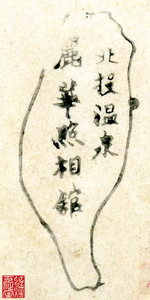 北投温泉
麗華照相館